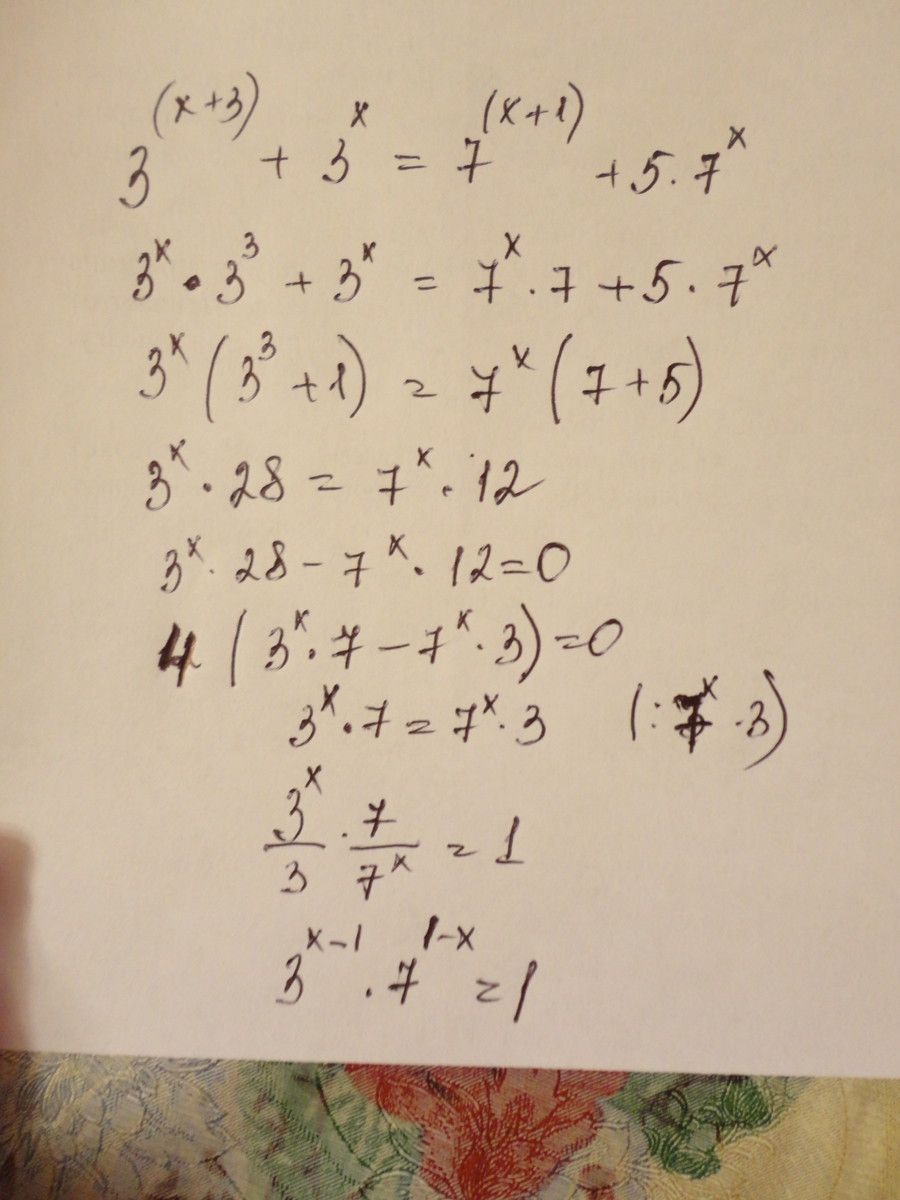 3^(x+3) + 3^x = 7^(x+1) + 5·7^x
3^x · 3^3 + 3^x = 7^x · 7 + 5 · 7^x
3^x (3^3 + 1) = 7^x (7 + 5)
3^x · 28 = 7^x · 12
3^x · 28 - 7^x · 12 = 0
4 (3^x · 7 - 7^x · 3) = 0
3^x · 7 = 7^x · 3 (: 7^x · 3)
3^x/3 · 7/7^x = 1
3^(x-1) · 7^(1-x) = 1